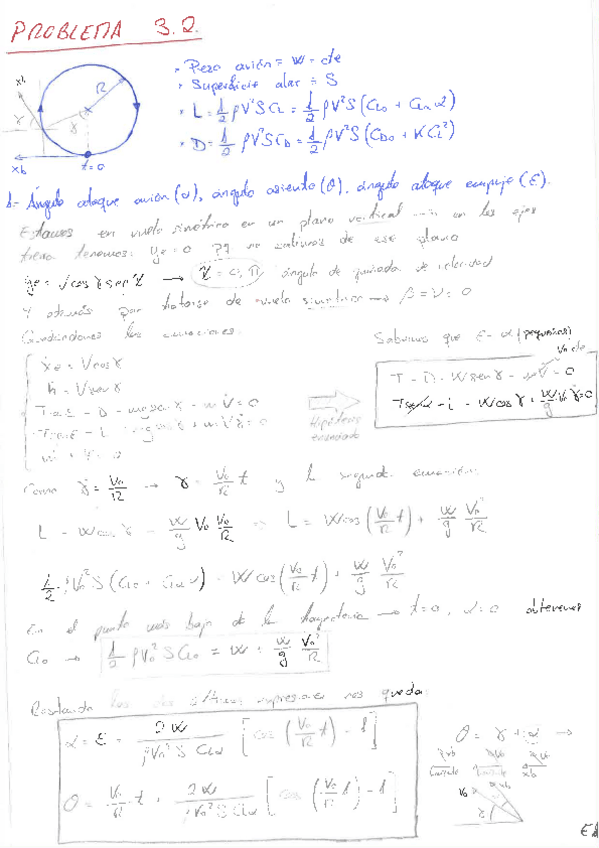 PROBLEMA 3.2.
Peso avión = W = cte
Superficie alar = S
L = 1/2 ρV²S C_L = 1/2 ρV²S (C_L0 + C_Lα α)
D = 1/2 ρV²S C_D = 1/2 ρV²S (C_D0 + K C_L²)
xh
γ
xb
R
γ
t=0
1- Ángulo ataque avión (α), ángulo asiento (θ), ángulo ataque empuje (ε).
Estamos en vuelo simétrico en un plano vertical en los ejes
tierra tenemos: ẏe = 0 pq no salimos de ese plano
ẏe = V cosγ sen χ → χ = 0, π ángulo de guiñada de velocidad
Y además por tratarse de vuelo simétrico → β = ν = 0
Quedándonos las ecuaciones:
Sabemos que ε = α (pequeños)
ẋe = V cosγ
ḣ = V senγ
T cos ε - D - mg senγ - m V̇ = 0
T sen ε - L - mg cosγ + m V γ̇ = 0
Hipótesis
enunciado
V₀ cte
T - D - W senγ - V̇ = 0
T sen α - L - W cosγ + W/g V₀ γ̇ = 0
Como γ̇ = V₀/R → γ = V₀/R t y la segunda ecuación:
L - W cosγ - W/g V₀ V₀/R ⇒ L = W cos(V₀/R t) + W/g V₀²/R
1/2 ρV₀² S (C_L0 + C_Lα α) = W cos(V₀/R t) + W/g V₀²/R
En el punto más bajo de la trayectoria → t=0, α=0 obtenemos
C_L0 → 1/2 ρV₀² S C_L0 = W + W/g V₀²/R
Restando las dos últimas expresiones nos queda:
α = ε = 2W/(ρV₀² S C_Lα) [cos(V₀/R t) - 1]
θ = V₀/R t + 2W/(ρV₀² S C_Lα) [cos(V₀/R t) - 1]
θ = γ + α →
xb
γ